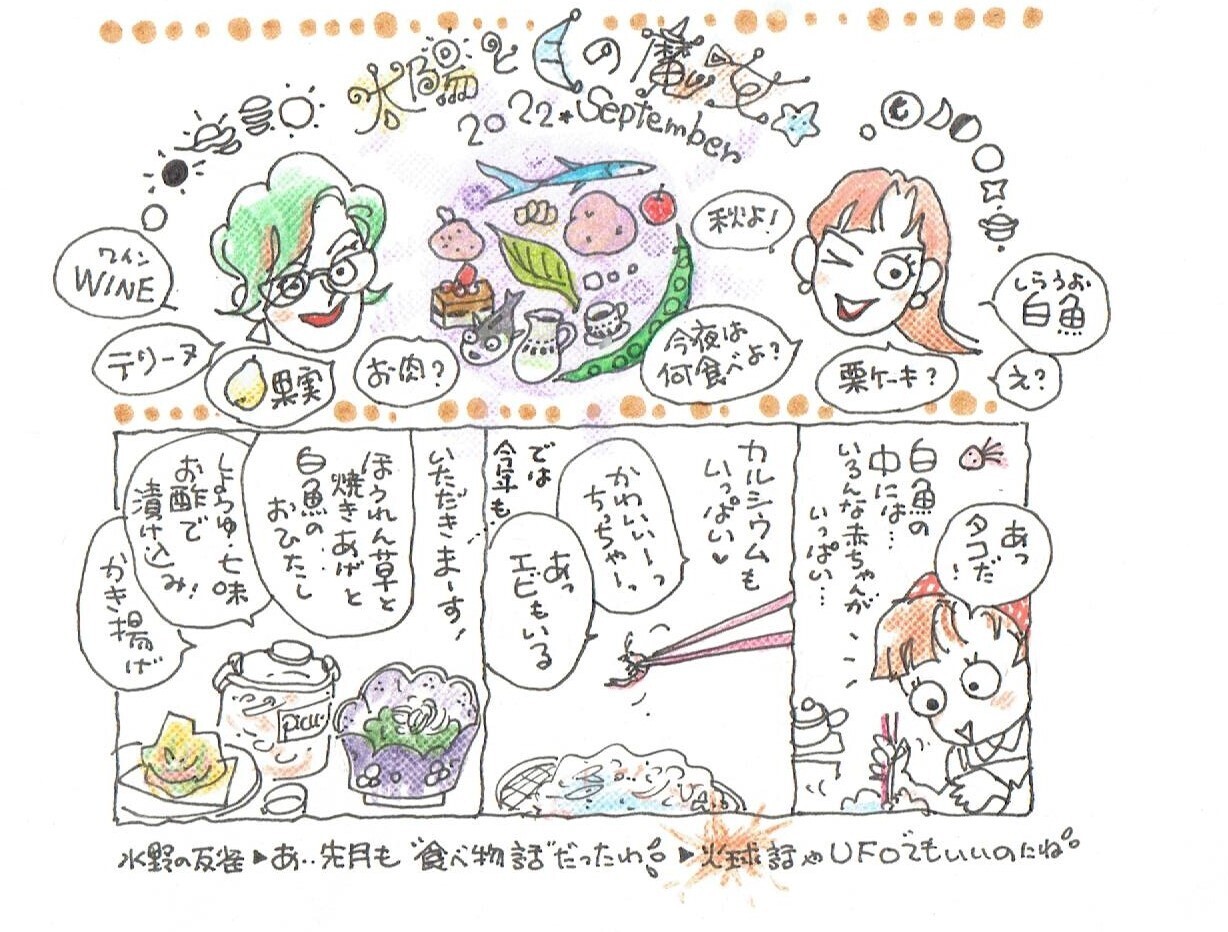 太陽と月の魔女
2022*September
ワイン
WINE
テリーヌ
果実
お肉?
秋よ!
今夜は
何食べよ?
栗ケーキ?
しらうお
白魚
え?
白魚の
中には…
いろんな赤ちゃんが
いっぱい…
あっ
タコだ!
カルシウムも
いっぱい♥
かわいいーっ
ちっちゃーっ
あっ
エビもいる
では
今年も…
いただきまーす!
ほうれん草と
焼きあげと
白魚の…
おひたし
しょうゆ・七味
お酢で
漬け込み!
かき揚げ
picu
水野の反省▶あ‥先月も“食べ物話”だったわ!▶火球話やUFOでもいいのにね